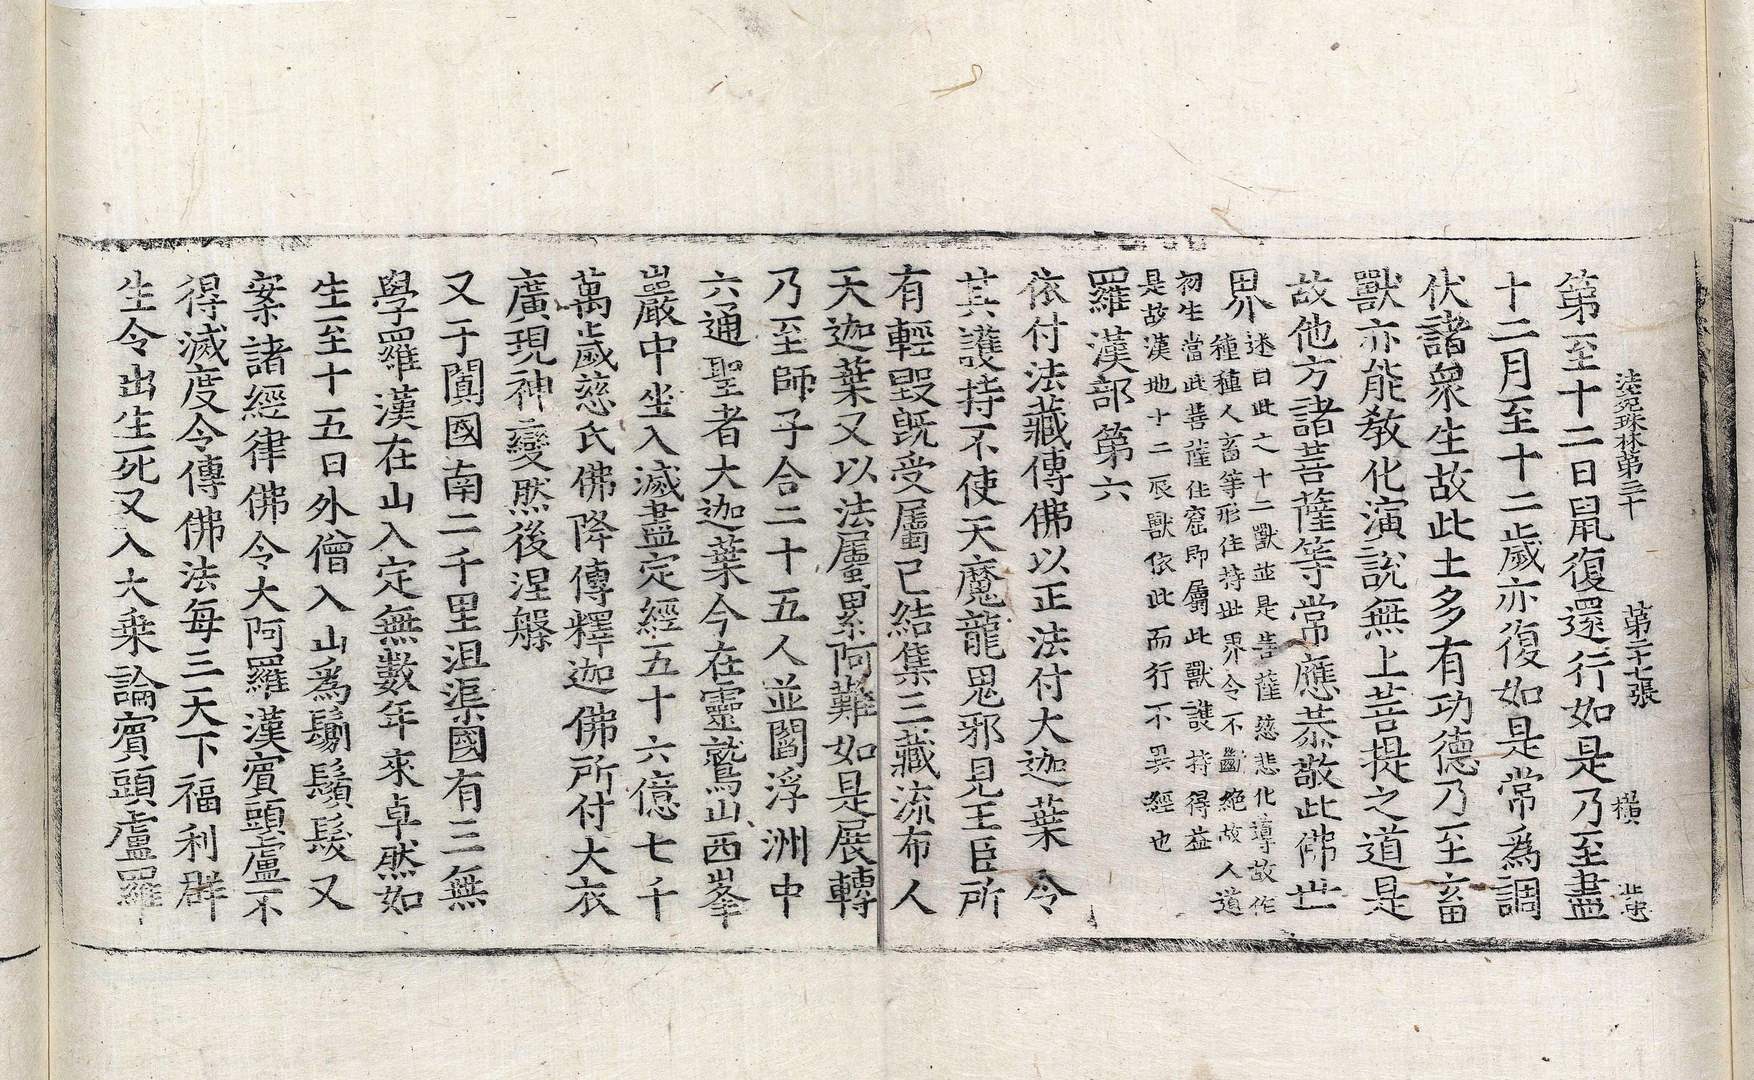 法苑珠林第三十　第二十七張　橫　止守
第至十二日鼠復還行如是乃至盡
十二月至十二歲亦復如是常爲調
伏諸衆生故此土多有功德乃至畜
獸亦能教化演說無上菩提之道是
故他方諸菩薩等常應恭敬此佛世
界
述曰此之十二獸並是菩薩慈悲化導故作
種種人畜等形住持世界令不斷絶故人道
初生當此菩薩住窟即屬此獸護持得益
是故漢地十二辰獸依此而行不異經也
羅漢部第六
依付法藏傳佛以正法付大迦葉令
其護持不使天魔龍鬼邪見王臣所
有輕毀旣受屬已結集三藏流布人
天迦葉又以法屬累阿難如是展轉
乃至師子合二十五人並閻浮洲中
六通聖者大迦葉今在靈鷲山西峯
巖中坐入滅盡定經五十六億七千
萬歲慈氏佛降傳釋迦佛所付大衣
廣現神變然後涅槃
又于闐國南二千里沮渠國有三無
學羅漢在山入定無數年來卓然如
生至十五日外僧入山爲剃鬚髮又
案諸經律佛令大阿羅漢賓頭盧不
得滅度令傳佛法每三天下福利群
生令出生死又入大乘論賓頭盧羅